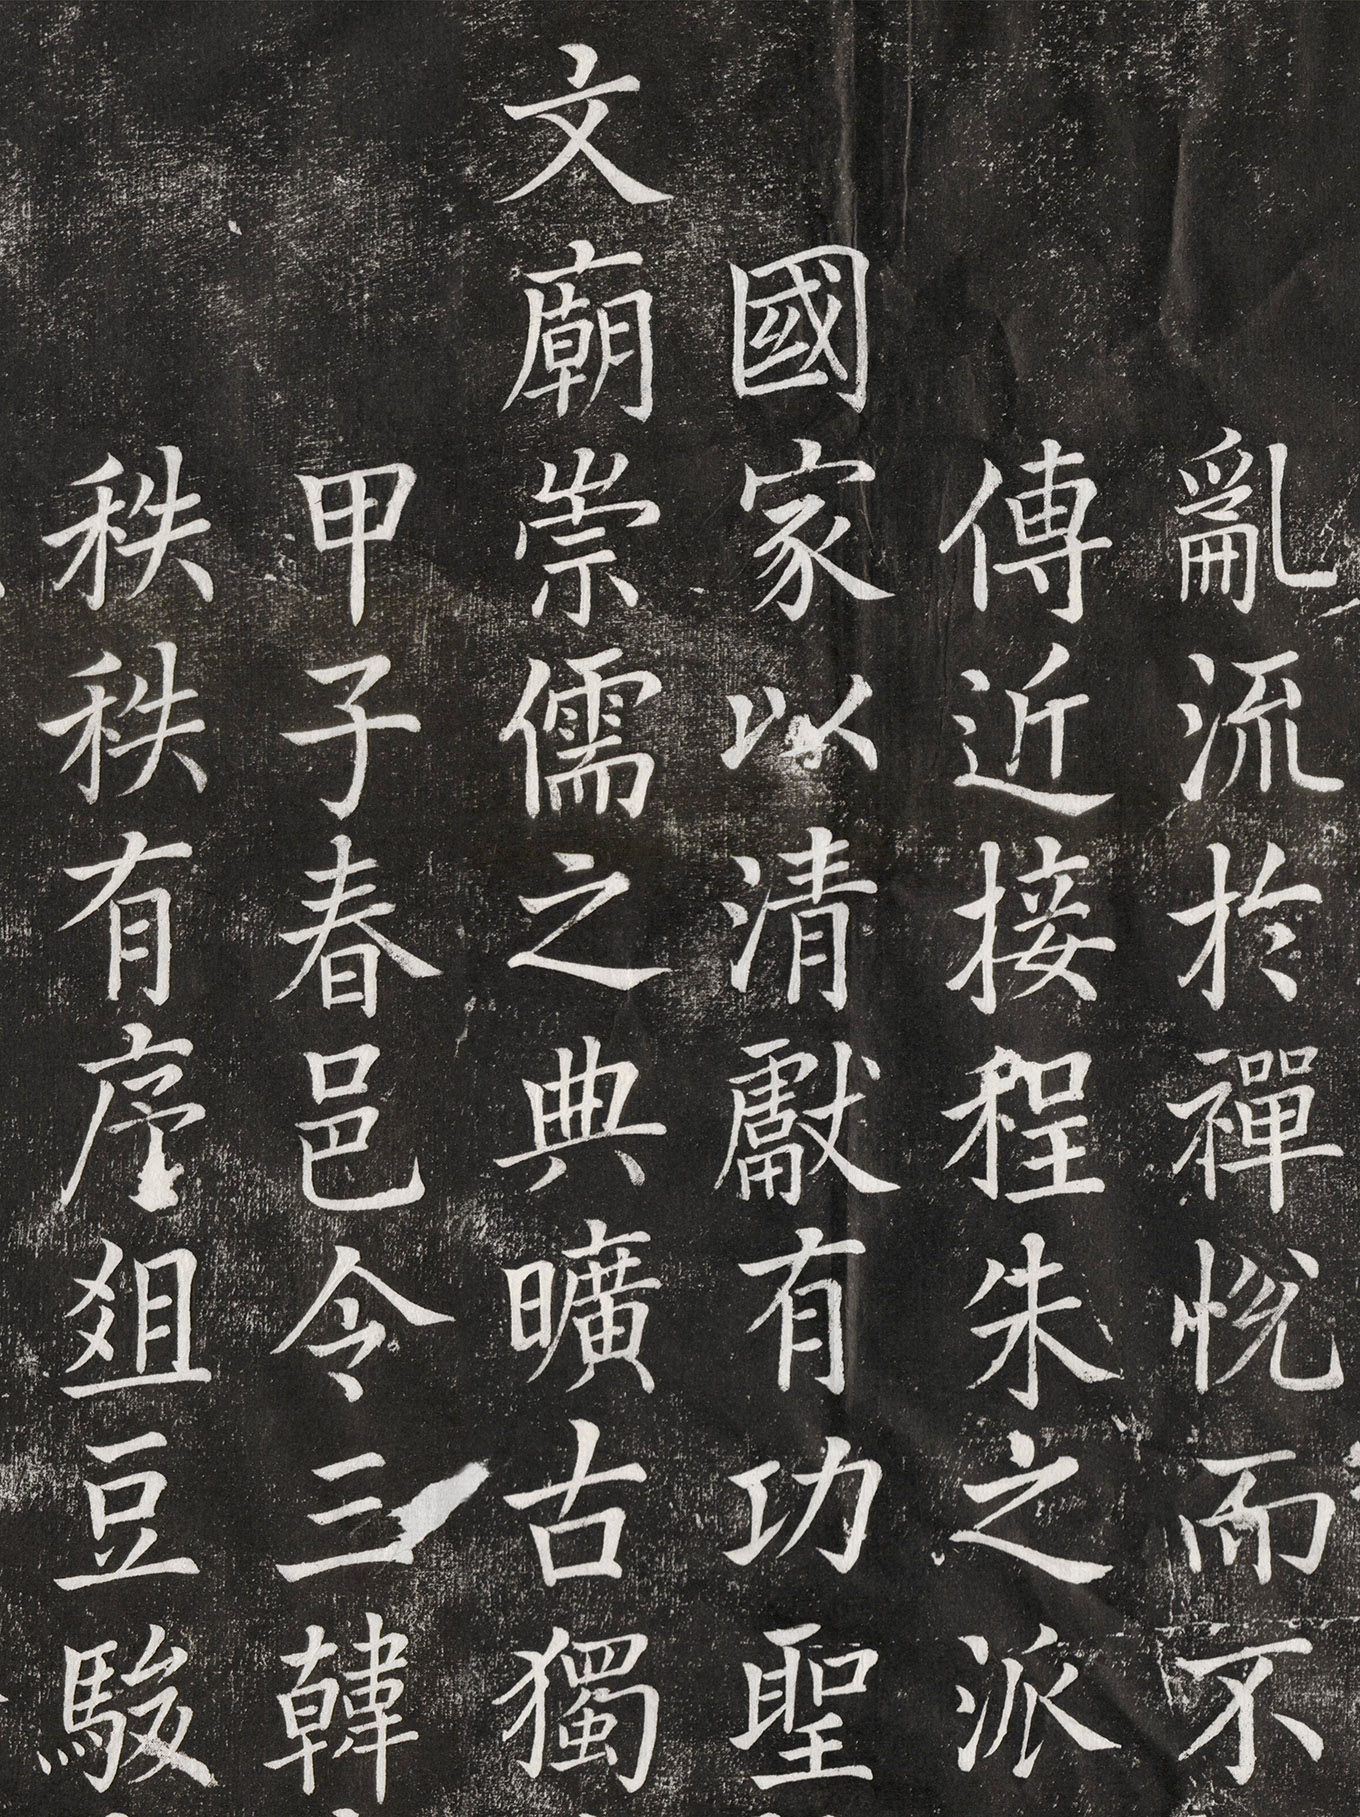 亂流於禪悅而不
傳近接程朱之派
國家以清獻有功聖
文廟崇儒之典曠古獨
甲子春邑令三韓
秩秩有序俎豆駿